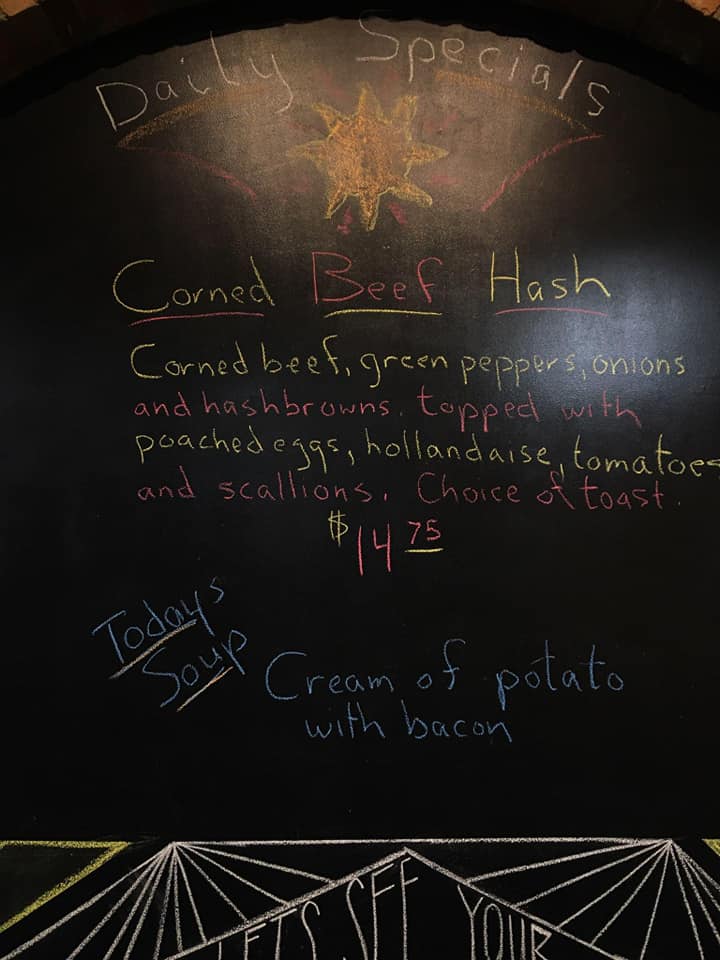 Daily Specials
Corned Beef Hash
Corned beef, green peppers, onions
and hashbrowns. topped with
poached eggs, hollandaise, tomatoes
and scallions. Choice of toast.
$14 75
Todays
Soup
Cream of potato
with bacon
LETS SEE YOUR